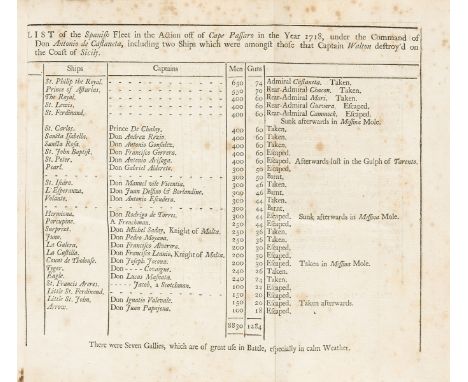 LIST of the Spanish Fleet in the Action off of Cape Passaro in the Year 1718, under the Command of
Don Antonio de Castaneta, including two Ships which were amongst those that Captain Walton destroy'd on
the Coast of Sicily.
Ships Captains Men Guns
St. Philip the Royal. 650 74 Admiral Castaneta. Taken.
Prince of Asturias. 550 70 Rear-Admiral Chacon. Taken.
The Royal. 400 60 Rear-Admiral Mari. Taken.
St. Lewis. 400 60 Rear-Admiral Guevera. Escaped.
St. Ferdinand. 400 60 Rear-Admiral Cammock. Escaped.
Sunk afterwards in Messina Mole.
St. Carlos. Prince De Chalay. 400 60 Taken.
Santa Isabella. Don Andrea Rezio. 400 60 Taken.
Santa Rosa. Don Antonio Gonsalez. 400 60 Taken.
St. John Baptist. Don Francisco Gerrera. 400 60 Escaped.
St. Peter. Don Antonio Arisaga. 400 60 Escaped. Afterwards lost in the Gulph of Tarento.
Pearl. Don Gabriel Alderete. 300 50 Escaped.
300 50 Burnt.
St. Isidro. Don Manuel vile Vicentia. 300 46 Taken.
L'Esperanza. Don Juan Delfino & Barlandino. 300 46 Burnt.
Volante. Don Antonio Escudera. 300 44 Taken.
300 44 Burnt.
Hermiona. Don Rodrigo de Torres. 300 44 Escaped. Sunk afterwards in Messina Mole.
Porcupine. A Frenchman. 250 44 Escaped.
Surprize. Don Michel Saday, Knight of Malta. 250 36 Taken.
Juno. Don Pedro Moyana. 250 36 Taken.
La Galera. Don Francisco Alverera. 200 30 Escaped.
La Castilla. Don Francisco Leanio, Knight of Malta. 200 30 Escaped.
Count de Tholouse. Don Joseph Jocene. 200 30 Escaped. Taken in Messina Mole.
Tyger. Don Covaigne. 240 26 Taken.
Eagle. Don Lucas Masnata. 240 24 Taken.
St. Francis Arares. Jacob, a Scotchman. 100 22 Escaped.
Little St. Ferdinand. 150 20 Escaped.
Little St. John. Don Ignatio Valevale. 150 20 Escaped. Taken afterwards.
Arrow. Don Juan Papajena. 100 18 Escaped.
8830 1284
There were Seven Gallies, which are of great use in Battle, especially in calm Weather.